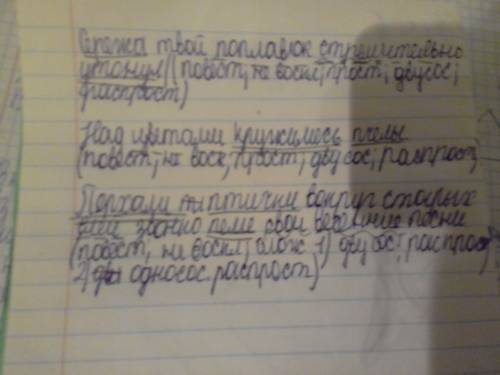 Сережа твой поплавок стремительно
утонул (повест, не воскл, прост, двусос,
распрост)
Над цветами кружились пчелы
(повест, не воск, прост, двусос, распрост)
Порхали птички вокруг старых
звонко пели свои весенние песни
(повест, не воскл, слож 1) двусос, распрост
2) односос. распрост)